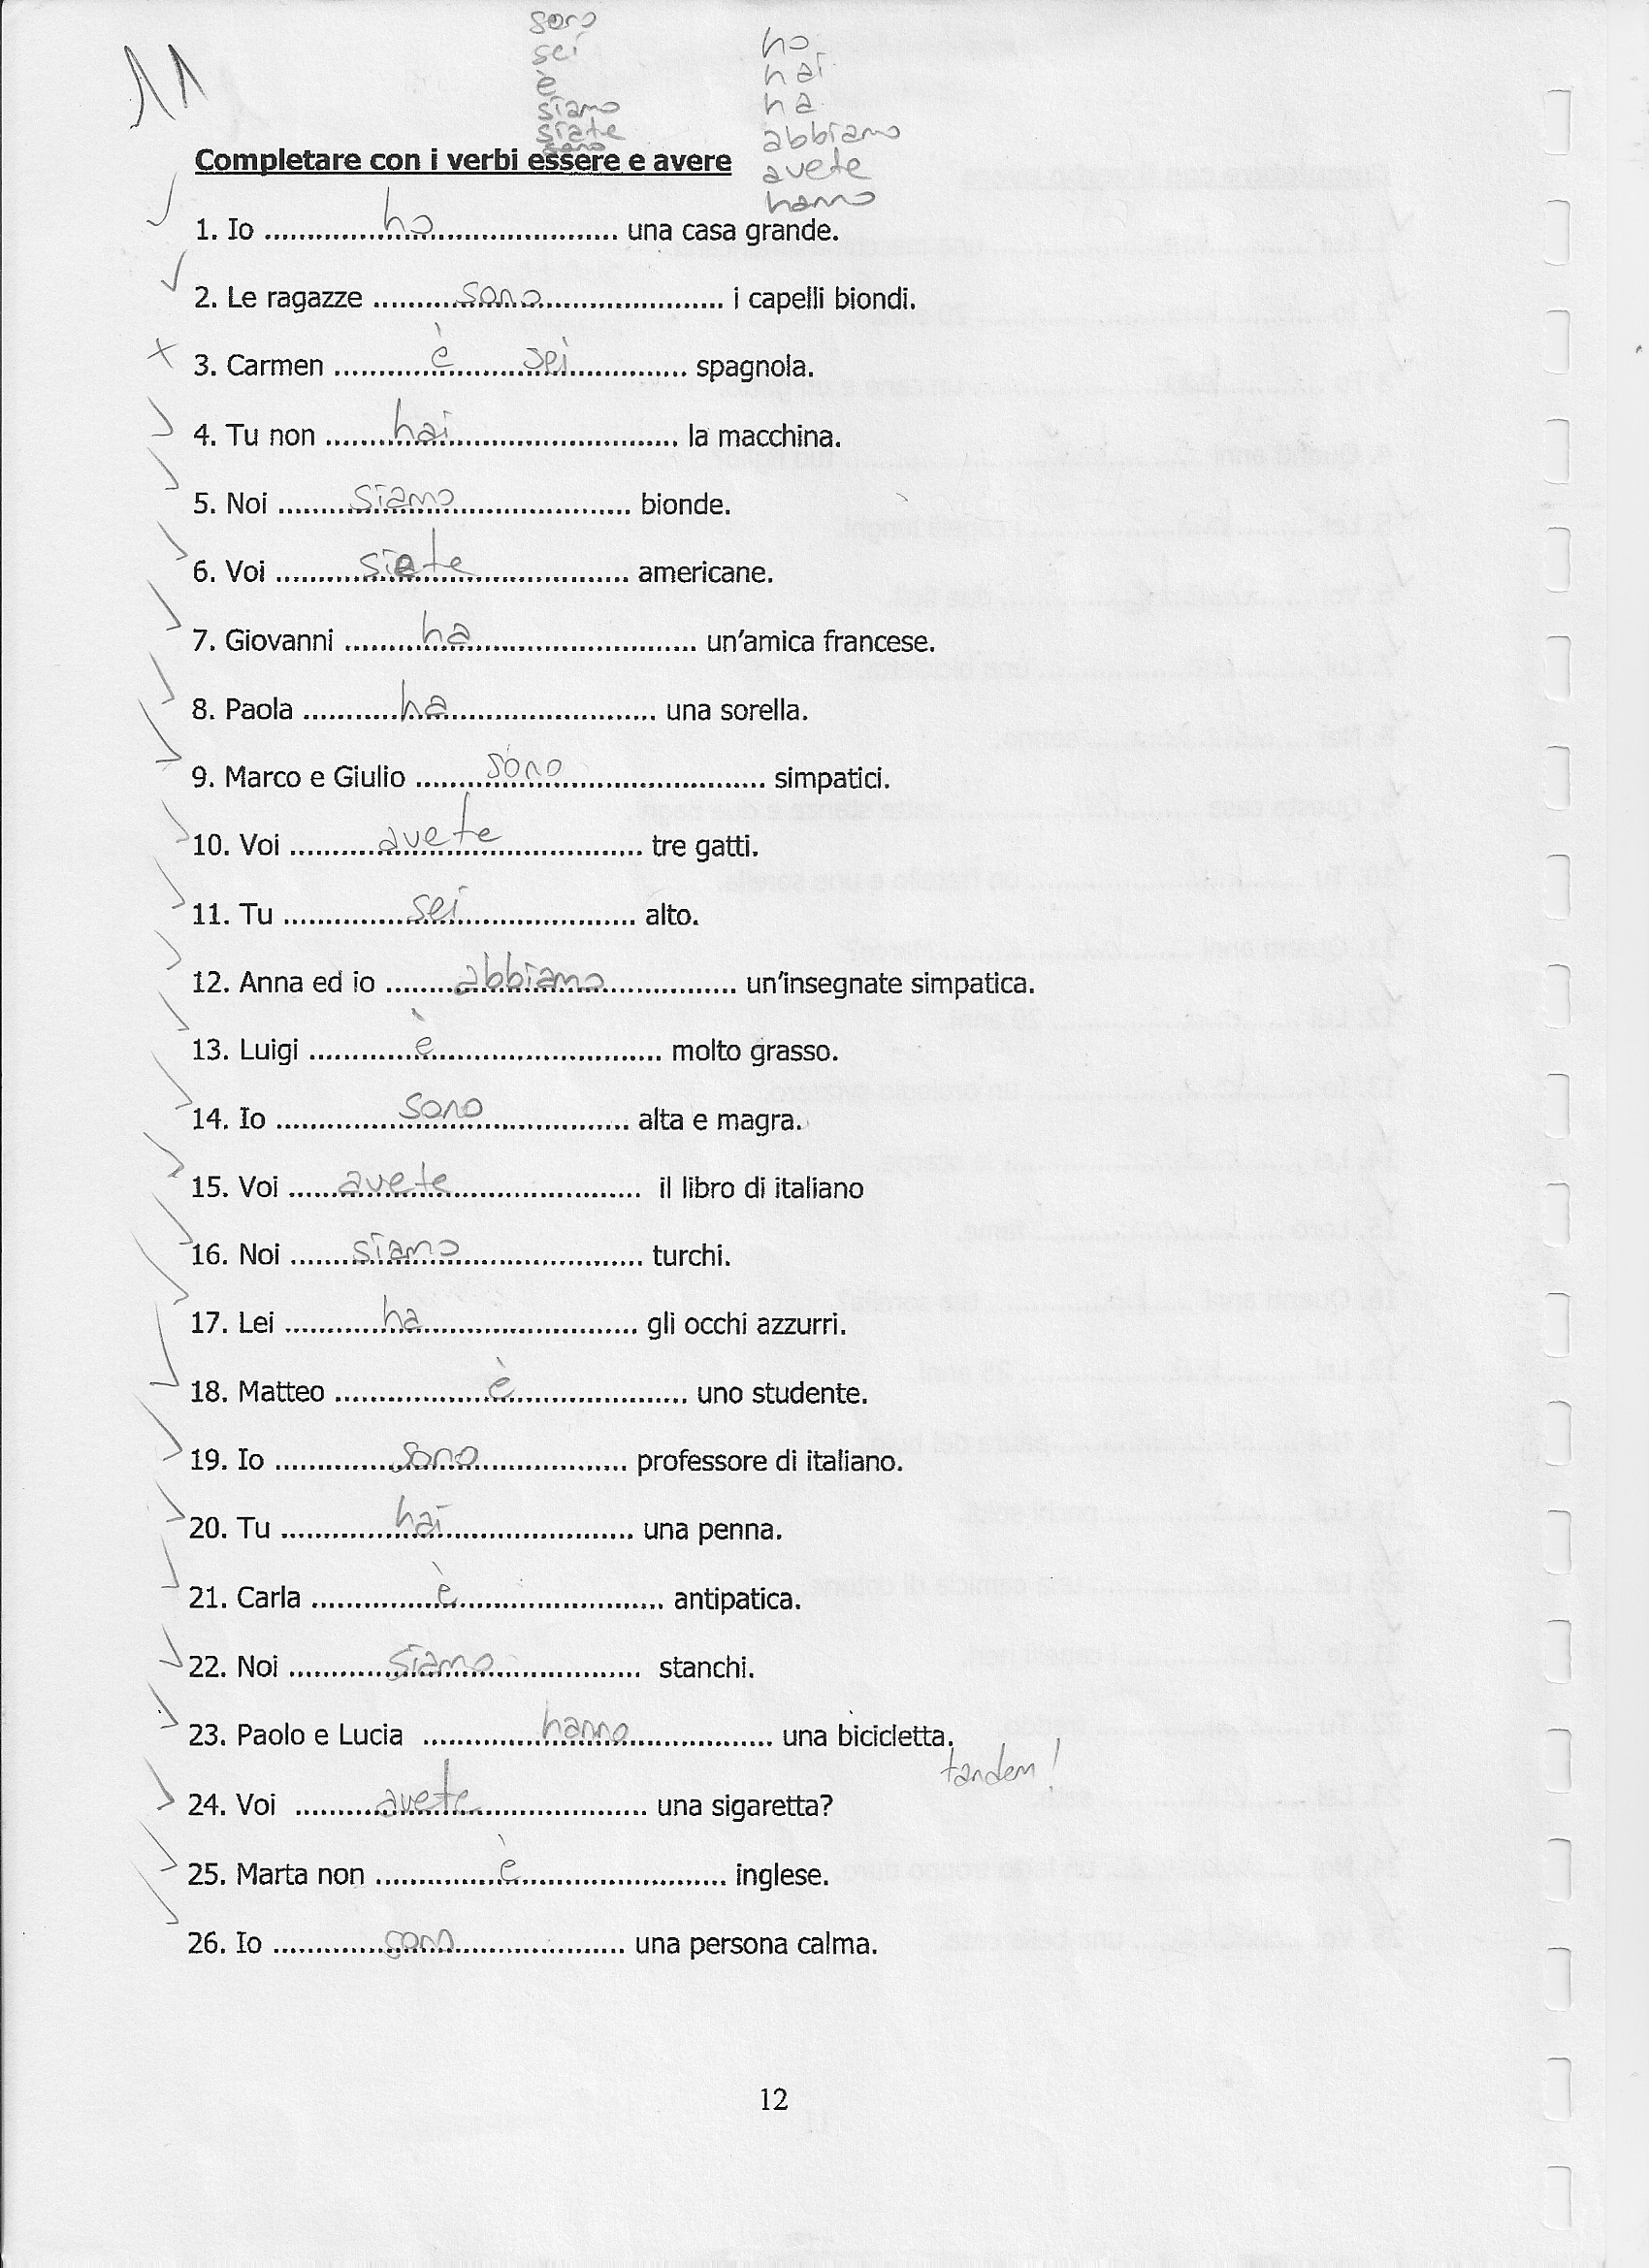 11
sono
sei
è
siamo
siate
sono
ho
hai
ha
abbiamo
avete
hanno
Completare con i verbi essere e avere
1. Io ..........ho.......... una casa grande.
2. Le ragazze ..........sono.......... i capelli biondi.
3. Carmen ..........è sei.......... spagnola.
4. Tu non ..........hai.......... la macchina.
5. Noi ..........siamo.......... bionde.
6. Voi ..........siete.......... americane.
7. Giovanni ..........ha.......... un'amica francese.
8. Paola ..........ha.......... una sorella.
9. Marco e Giulio ..........sono.......... simpatici.
10. Voi ..........avete.......... tre gatti.
11. Tu ..........sei.......... alto.
12. Anna ed io ..........abbiamo.......... un'insegnate simpatica.
13. Luigi ..........è.......... molto grasso.
14. Io ..........sono.......... alta e magra.
15. Voi ..........avete.......... il libro di italiano
16. Noi ..........siamo.......... turchi.
17. Lei ..........ha.......... gli occhi azzurri.
18. Matteo ..........è.......... uno studente.
19. Io ..........sono.......... professore di italiano.
20. Tu ..........hai.......... una penna.
21. Carla ..........è.......... antipatica.
22. Noi ..........siamo.......... stanchi.
23. Paolo e Lucia ..........hanno.......... una bicicletta.
tandem!
24. Voi ..........avete.......... una sigaretta?
25. Marta non ..........è.......... inglese.
26. Io ..........sono.......... una persona calma.
12